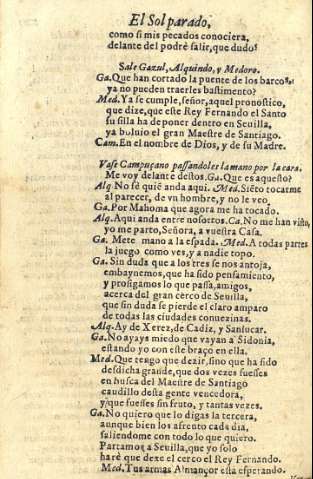 El Sol parado,
como si mis pecados conociera,
delante del podrè salir, que dudo?
Sale Gazul, Alquindo, y Medoro.
Ga. Que han cortado la puente de los barcos?
ya no pueden traerles bastimento?
Med. Ya se cumple, señor, aquel pronostico,
que dize, que este Rey Fernando el Santo
su silla ha de poner dentro en Seuilla,
ya boluio el gran Maestre de Santiago.
Cam. En el nombre de Dios, y de su Madre.
Vase Campuçano passandoles la mano por la cara.
Me voy delante destos. Ga. Que es aquesto?
Alq. No sè quiē anda aqui. Med. Siēto tocarme
al parecer, de vn hombre, y no le veo.
Ga. Por Mahoma que agora me ha tocado.
Alq. Aqui anda entre nosotros. Ca. No me han visto,
yo me parto, Señora, a vuestra Casa.
Ga. Mete mano a la espada. Med. A todas partes
la juego como ves, y a nadie topo.
Ga. Sin duda que a los tres se nos antoja,
embaynemos, que ha sido pensamiento,
y prosigamos lo que passa, amigos,
acerca del gran cerco de Seuilla,
que sin duda se pierde el claro amparo
de todas las ciudades conuezinas.
Alq. Ay de Xerez, de Cadiz, y Sanlucar.
Ga. No ayays miedo que vayan a Sidonia,
estando yo con este braço en ella.
Med. Que tengo que dezir, sino que ha sido
desdicha grande, que dos vezes fuesses
en busca del Maestre de Santiago
caudillo desta gente vencedora,
y que fuesses sin fruto, y tantas vezes.
Ga. No quiero que lo digas la tercera,
aunque bien los afrento cada dia,
saliendome con todo lo que quiero.
Partamos a Seuilla, que yo solo
harè que dexe el cerco el Rey Fernando.
Med. Tus armas Almançor està esperando.